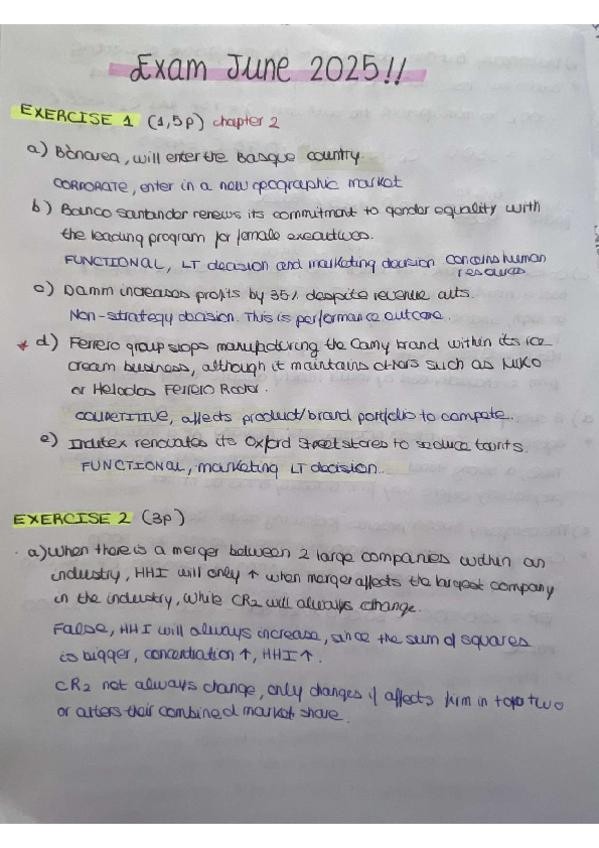 Exam June 2025!!
EXERCISE 1 (1,5p) chapter 2
a) Bonarea, will enter the Basque country.
CORPORATE, enter in a new geographic market
b) Banco Santander renews its commitment to gender equality with
the leading program for female executives.
FUNCTIONAL, LT decision and marketing decision concerns human
resources
c) Damm increases profits by 35% despite revenue cuts.
Non-strategy decision. This is performance outcome.
* d) Ferrero group stops manufacturing the Camy brand within its ice
cream business, although it maintains others such as NIKO
or Helados Ferrero Rocher.
COMPETITIVE, affects product/brand portfolio to compete.
e) Inditex renovates its Oxford Street stores to seduce tourists.
FUNCTIONAL, marketing LT decision.
EXERCISE 2 (3p)
a) When there is a merger between 2 large companies within an
industry, HHI will only ↑ when merger affects the largest company
in the industry, while CR2 will always change.
False, HHI will always increase, since the sum of squares
is bigger, concentration ↑, HHI ↑.
CR2 not always change, only changes if affects firm in top two
or alters their combined market share.